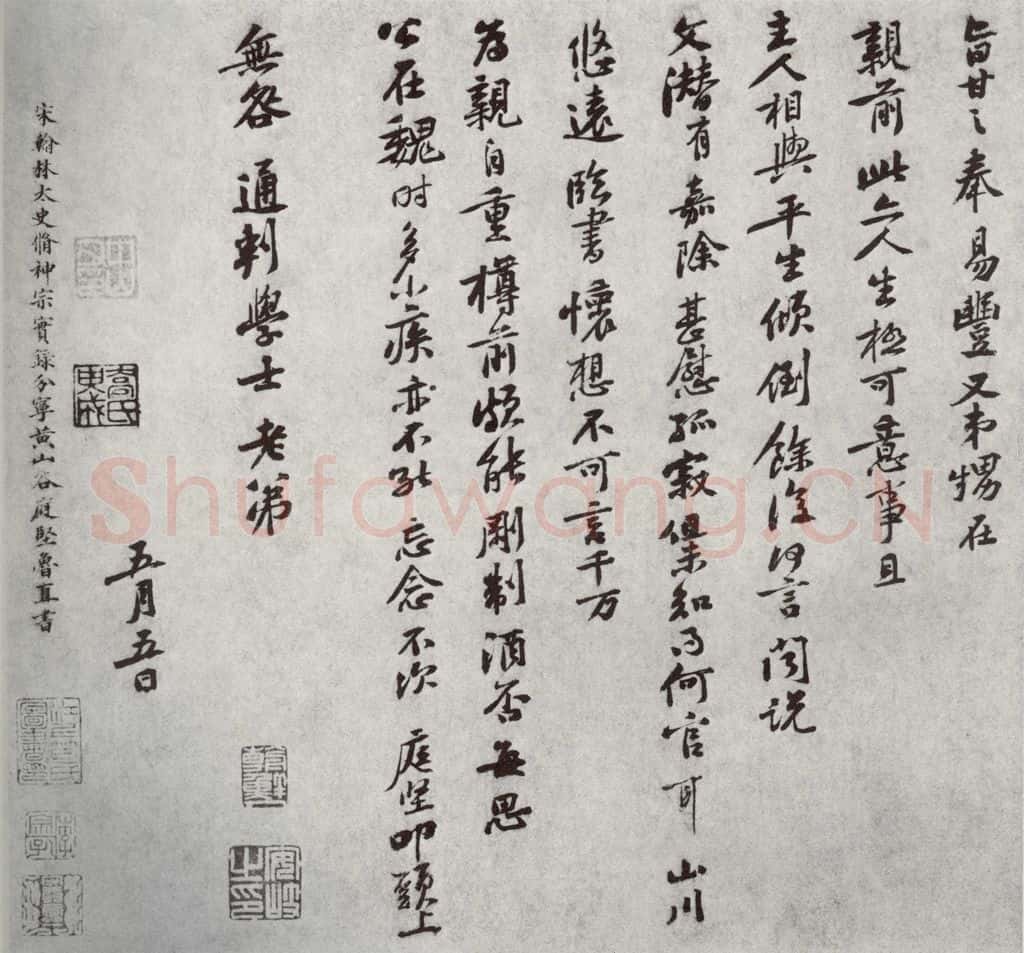 旨甘之奉易豐又弟甥在
親前此亦人生極可意事且
主人相與平生傾倒餘復何言聞說
文潛有嘉除甚慰孤寂但未知得何官耳 山川
悠遠臨書懷想不可言千万
為親自重樽前頗能剛制酒否無恩
公在魏時多小疾亦不能忘念不次 庭堅叩頭上
無咎通判學士老弟
五月五日
宋翰林太史脩神宗實錄分寧黃山谷庭堅魯直書
Shufawang.CN